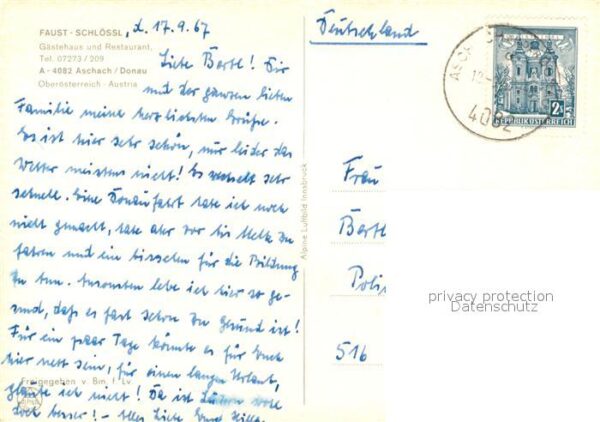 FAUST - SCHLÖSSL, d. 17.9.67
Gästehaus und Restaurant,
Tel. 07273 / 209
A - 4082 Aschach / Donau
Oberösterreich · Austria
Liebe Bertl! Dir
und der ganzen lieben
Familie meine herzlichsten Grüße.
Es ist hier sehr schön, nur leider das
Wetter meistens nicht! Es wechselt sehr
schnell. Eine Donaufahrt habe ich noch
nicht gemacht, habe aber vor bis Melk zu
fahren und ein bisschen für die Bildung
zu tun. Ansonsten lebe ich hier so ge-
sund, daß es fast schon zu gesund ist!
Für ein paar Tage könnte es für Euch
hier nett sein, für einen langen Urlaub,
glaube ich nicht! Da ist
doch besser! - Alles Liebe
Freigegeben v. Bm. f. Lv.
Alpine Luftbild Innsbruck
Deutschland
4082
2 S
REPUBLIK ÖSTERREICH
Frau
Bertl
516
privacy protection
Datenschutz